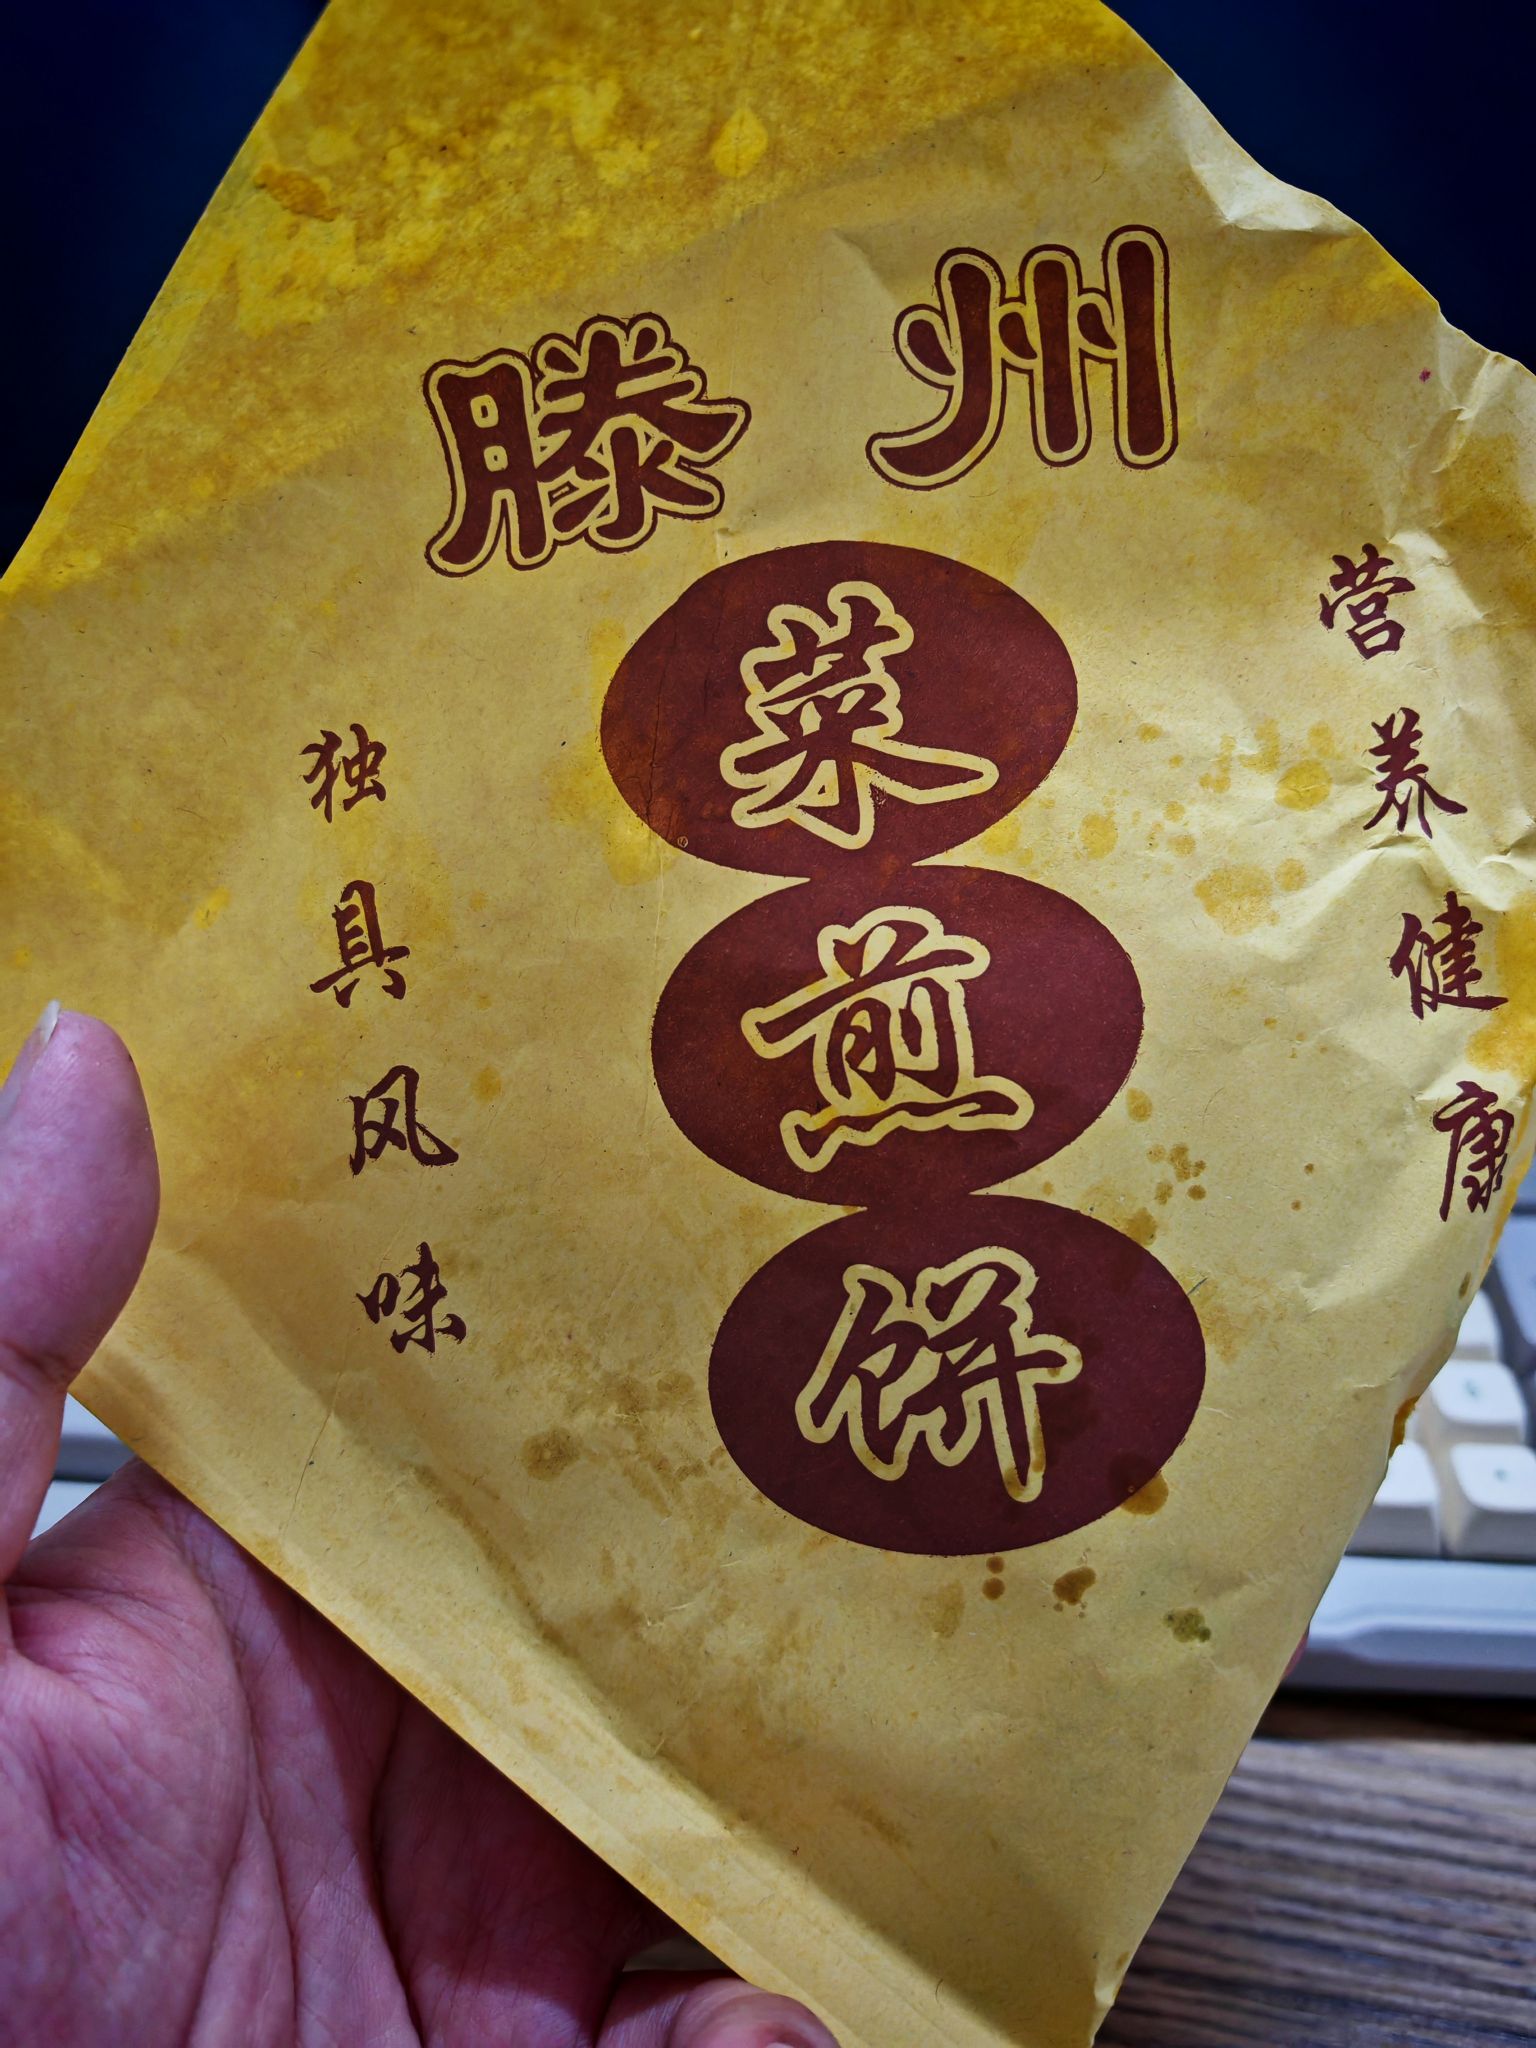 滕州
菜煎饼
营养健康
独具风味